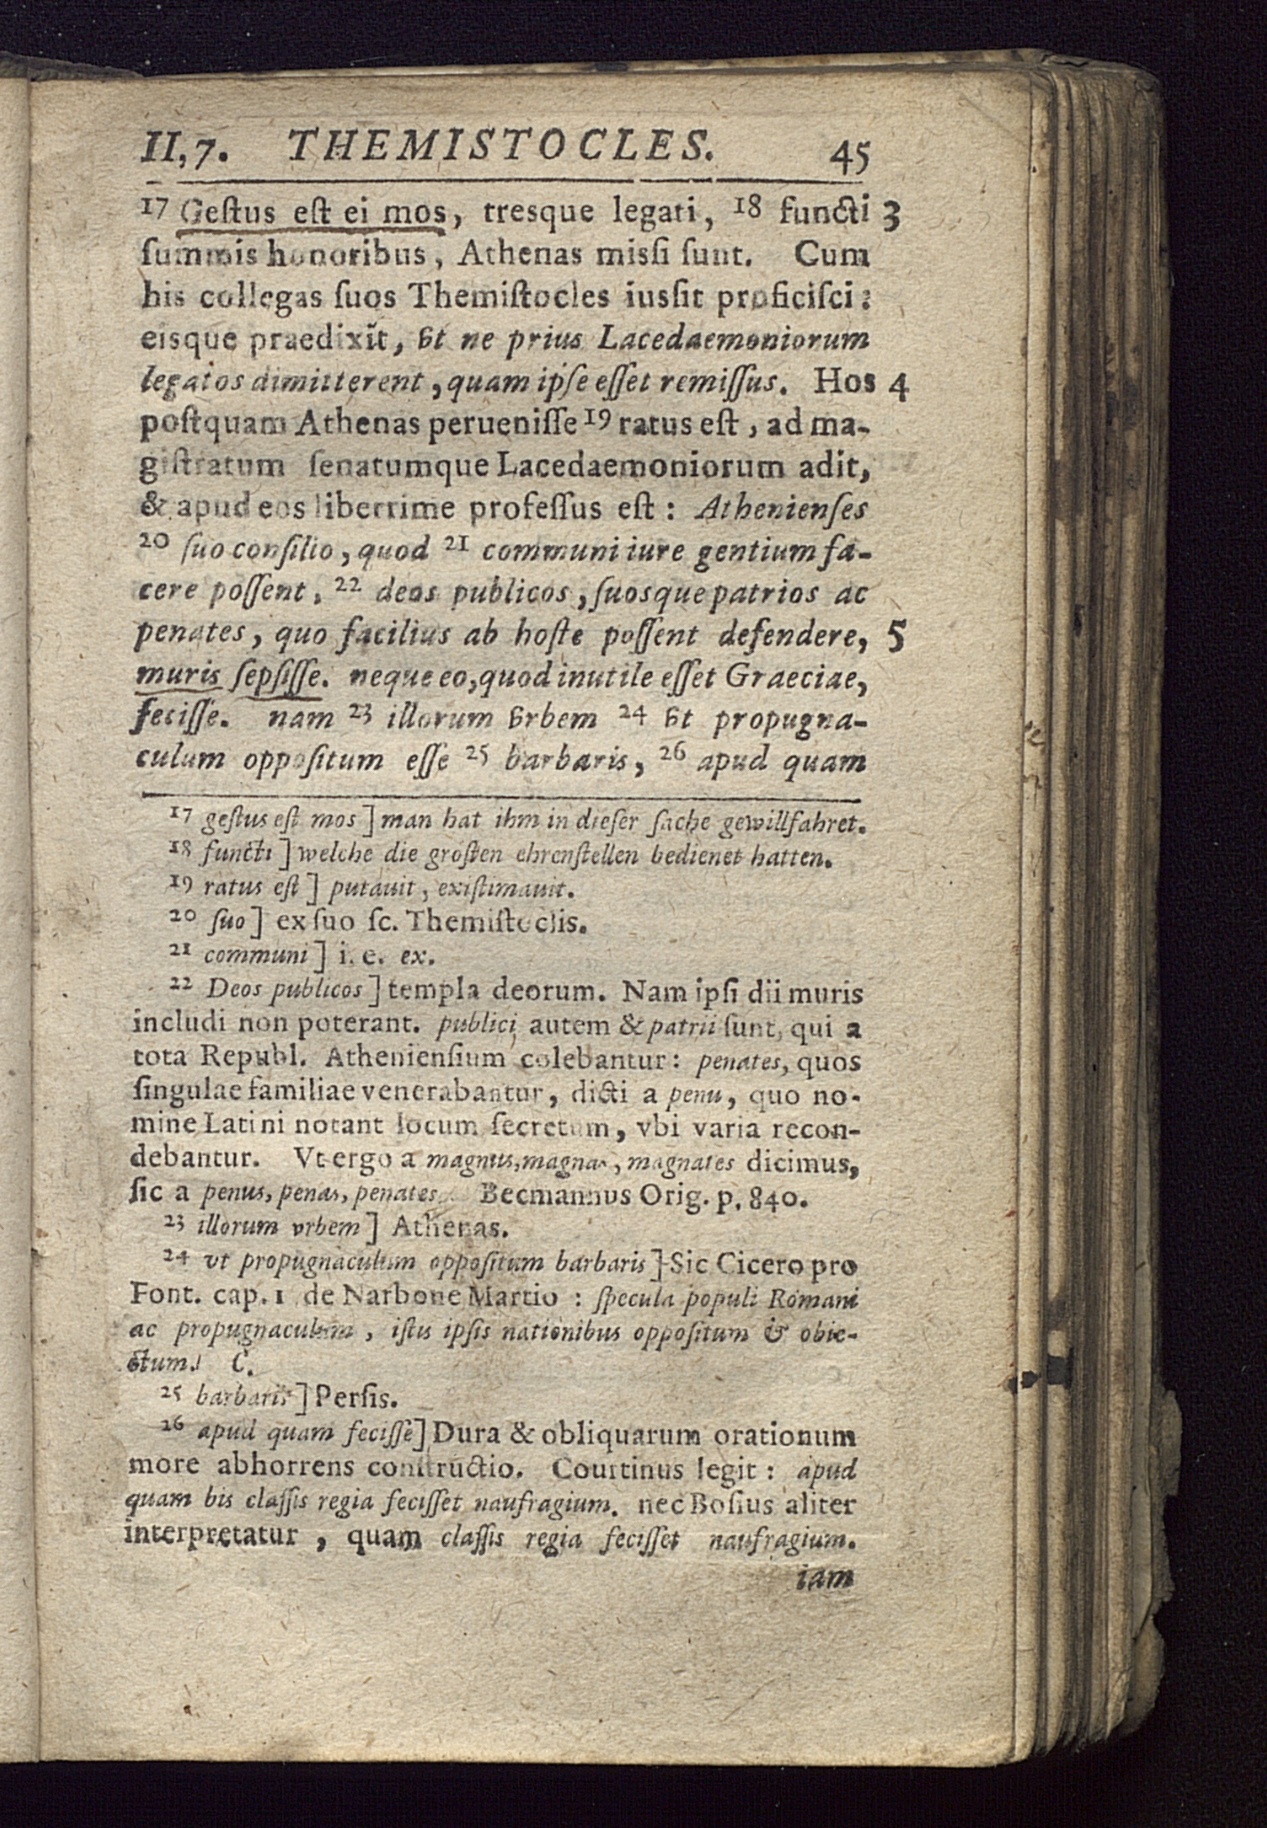 II,7. THEMISTOCLES. 45
17 Gestus est ei mos, tresque legati, 18 functi 3
summis honoribus, Athenas missi sunt. Cum
his collegas suos Themistocles iussit proficisci:
eisque praedixit, vt ne prius Lacedaemoniorum
legatos dimitterent, quam ipse esset remissus. Hos 4
postquam Athenas peruenisse 19 ratus est, ad ma-
gistratum senatumque Lacedaemoniorum adit,
& apud eos liberrime professus est: Athenienses
20 suo consilio, quod 21 communi iure gentium fa-
cere possent, 22 deos publicos, suosque patrios ac
penates, quo facilius ab hoste possent defendere, 5
muris sepsisse. neque eo, quod inutile esset Graeciae,
fecisse. nam 23 illorum vrbem 24 vt propugna-
culum oppositum esse 25 barbaris, 26 apud quam
17 gestus est mos] man hat ihm in dieser sache gewillfahret.
18 functi] welche die grosten ehrenstellen bedienet hatten.
19 ratus est] putauit, existimauit.
20 suo] ex suo sc. Themistoclis.
21 communi] i. e. ex.
22 Deos publicos] templa deorum. Nam ipsi dii muris
includi non poterant. publici autem & patrii sunt, qui a
tota Republ. Atheniensium colebantur: penates, quos
singulae familiae venerabantur, dicti a penu, quo no-
mine Latini notant locum secretum, vbi varia recon-
debantur. Vt ergo a magnus, magnas, magnates dicimus,
sic a penus, penas, penates. Becmannus Orig. p. 840.
23 illorum vrbem] Athenas.
24 vt propugnaculum oppositum barbaris] Sic Cicero pro
Font. cap. 1 de Narbone Martio: specula populi Romani
ac propugnaculum, istis ipsis nationibus oppositum & obie-
ctum. C.
25 barbaris] Persis.
26 apud quam fecisse] Dura & obliquarum orationum
more abhorrens constructio. Courtinus legit: apud
quam bis classis regia fecisset naufragium. nec Bosius aliter
interpretatur, quam classis regia fecisset naufragium.
iam